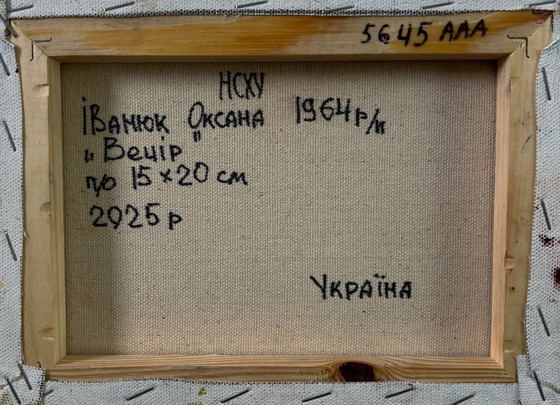 5645 AAA
НСХУ
Іванюк Оксана 1964 р/н
„Вечір"
п/о 15 × 20 см
2025 р
Україна